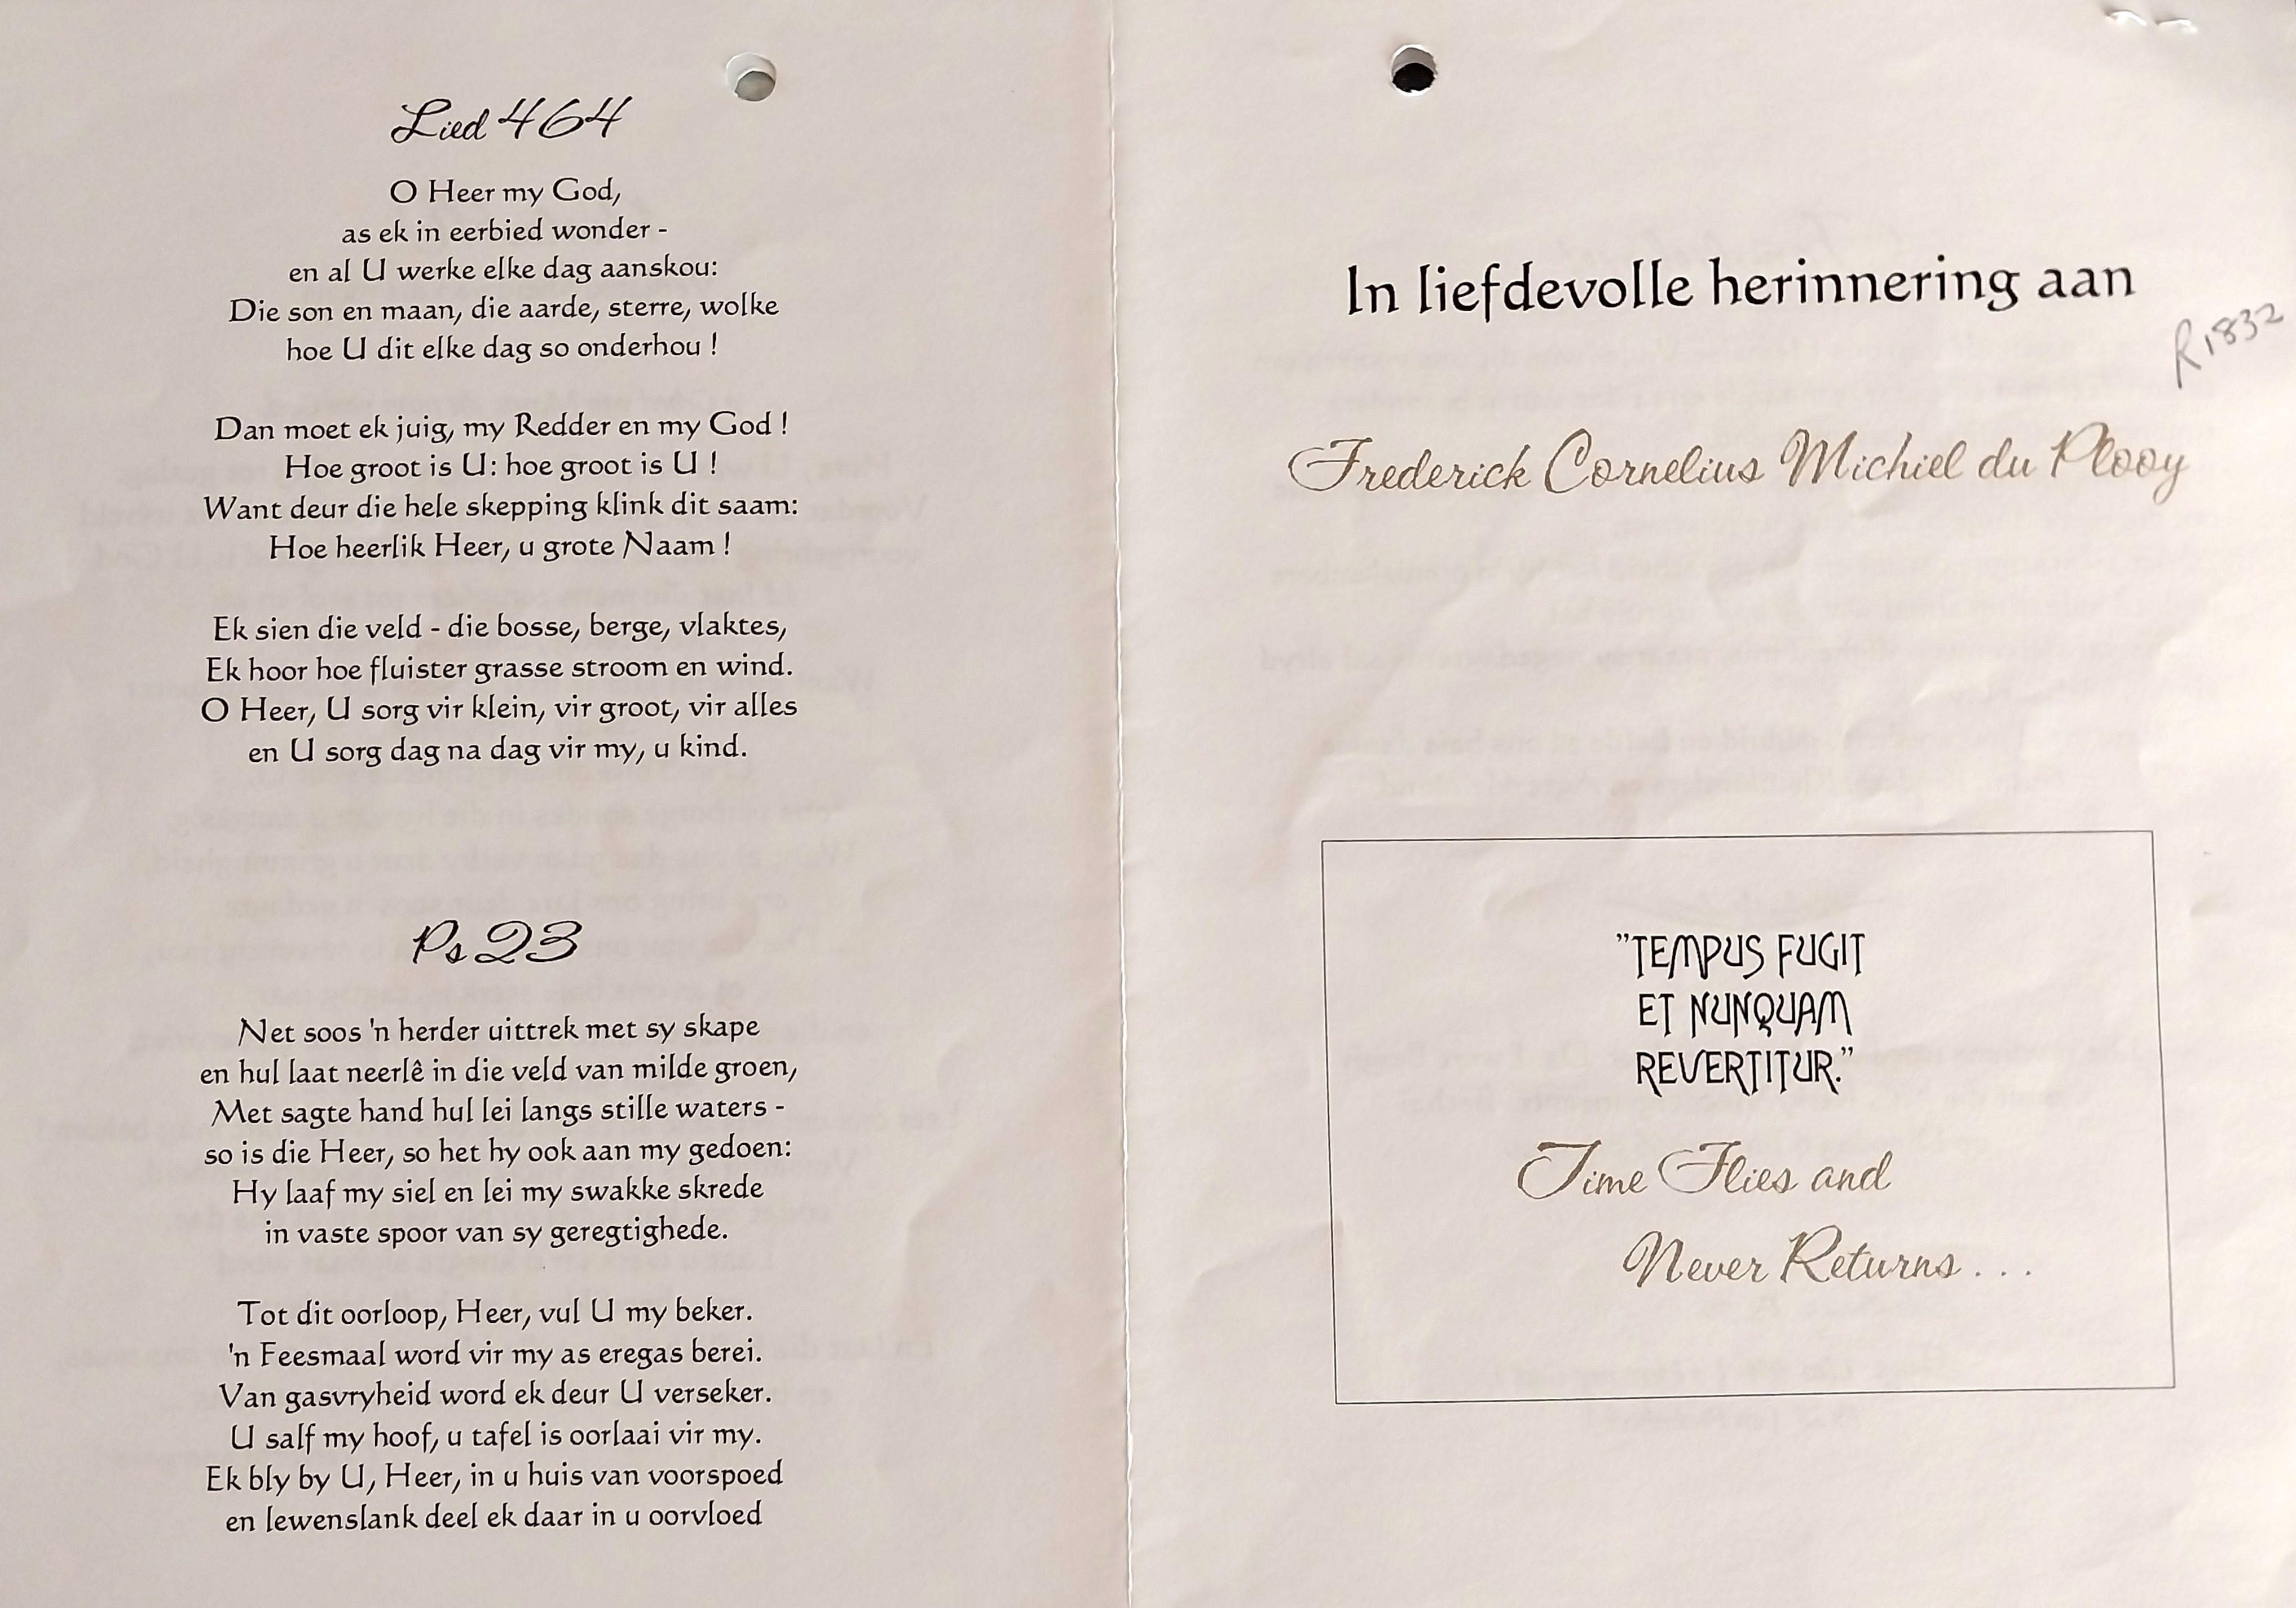 Lied 464
O Heer my God,
as ek in eerbied wonder -
en al U werke elke dag aanskou:
Die son en maan, die aarde, sterre, wolke
hoe U dit elke dag so onderhou !
Dan moet ek juig, my Redder en my God !
Hoe groot is U: hoe groot is U !
Want deur die hele skepping klink dit saam:
Hoe heerlik Heer, u grote Naam !
Ek sien die veld - die bosse, berge, vlaktes,
Ek hoor hoe fluister grasse stroom en wind.
O Heer, U sorg vir klein, vir groot, vir alles
en U sorg dag na dag vir my, u kind.
Ps 23
Net soos 'n herder uittrek met sy skape
en hul laat neerlê in die veld van milde groen,
Met sagte hand hul lei langs stille waters -
so is die Heer, so het hy ook aan my gedoen:
Hy laaf my siel en lei my swakke skrede
in vaste spoor van sy geregtighede.
Tot dit oorloop, Heer, vul U my beker.
'n Feesmaal word vir my as eregas berei.
Van gasvryheid word ek deur U verseker.
U salf my hoof, u tafel is oorlaai vir my.
Ek bly by U, Heer, in u huis van voorspoed
en lewenslank deel ek daar in u oorvloed
In liefdevolle herinnering aan
R1832
Frederick Cornelius Michiel du Plooy
"TEMPUS FUGIT
ET NUNQUAM
REVERTITUR."
Time Flies and
Never Returns . . .